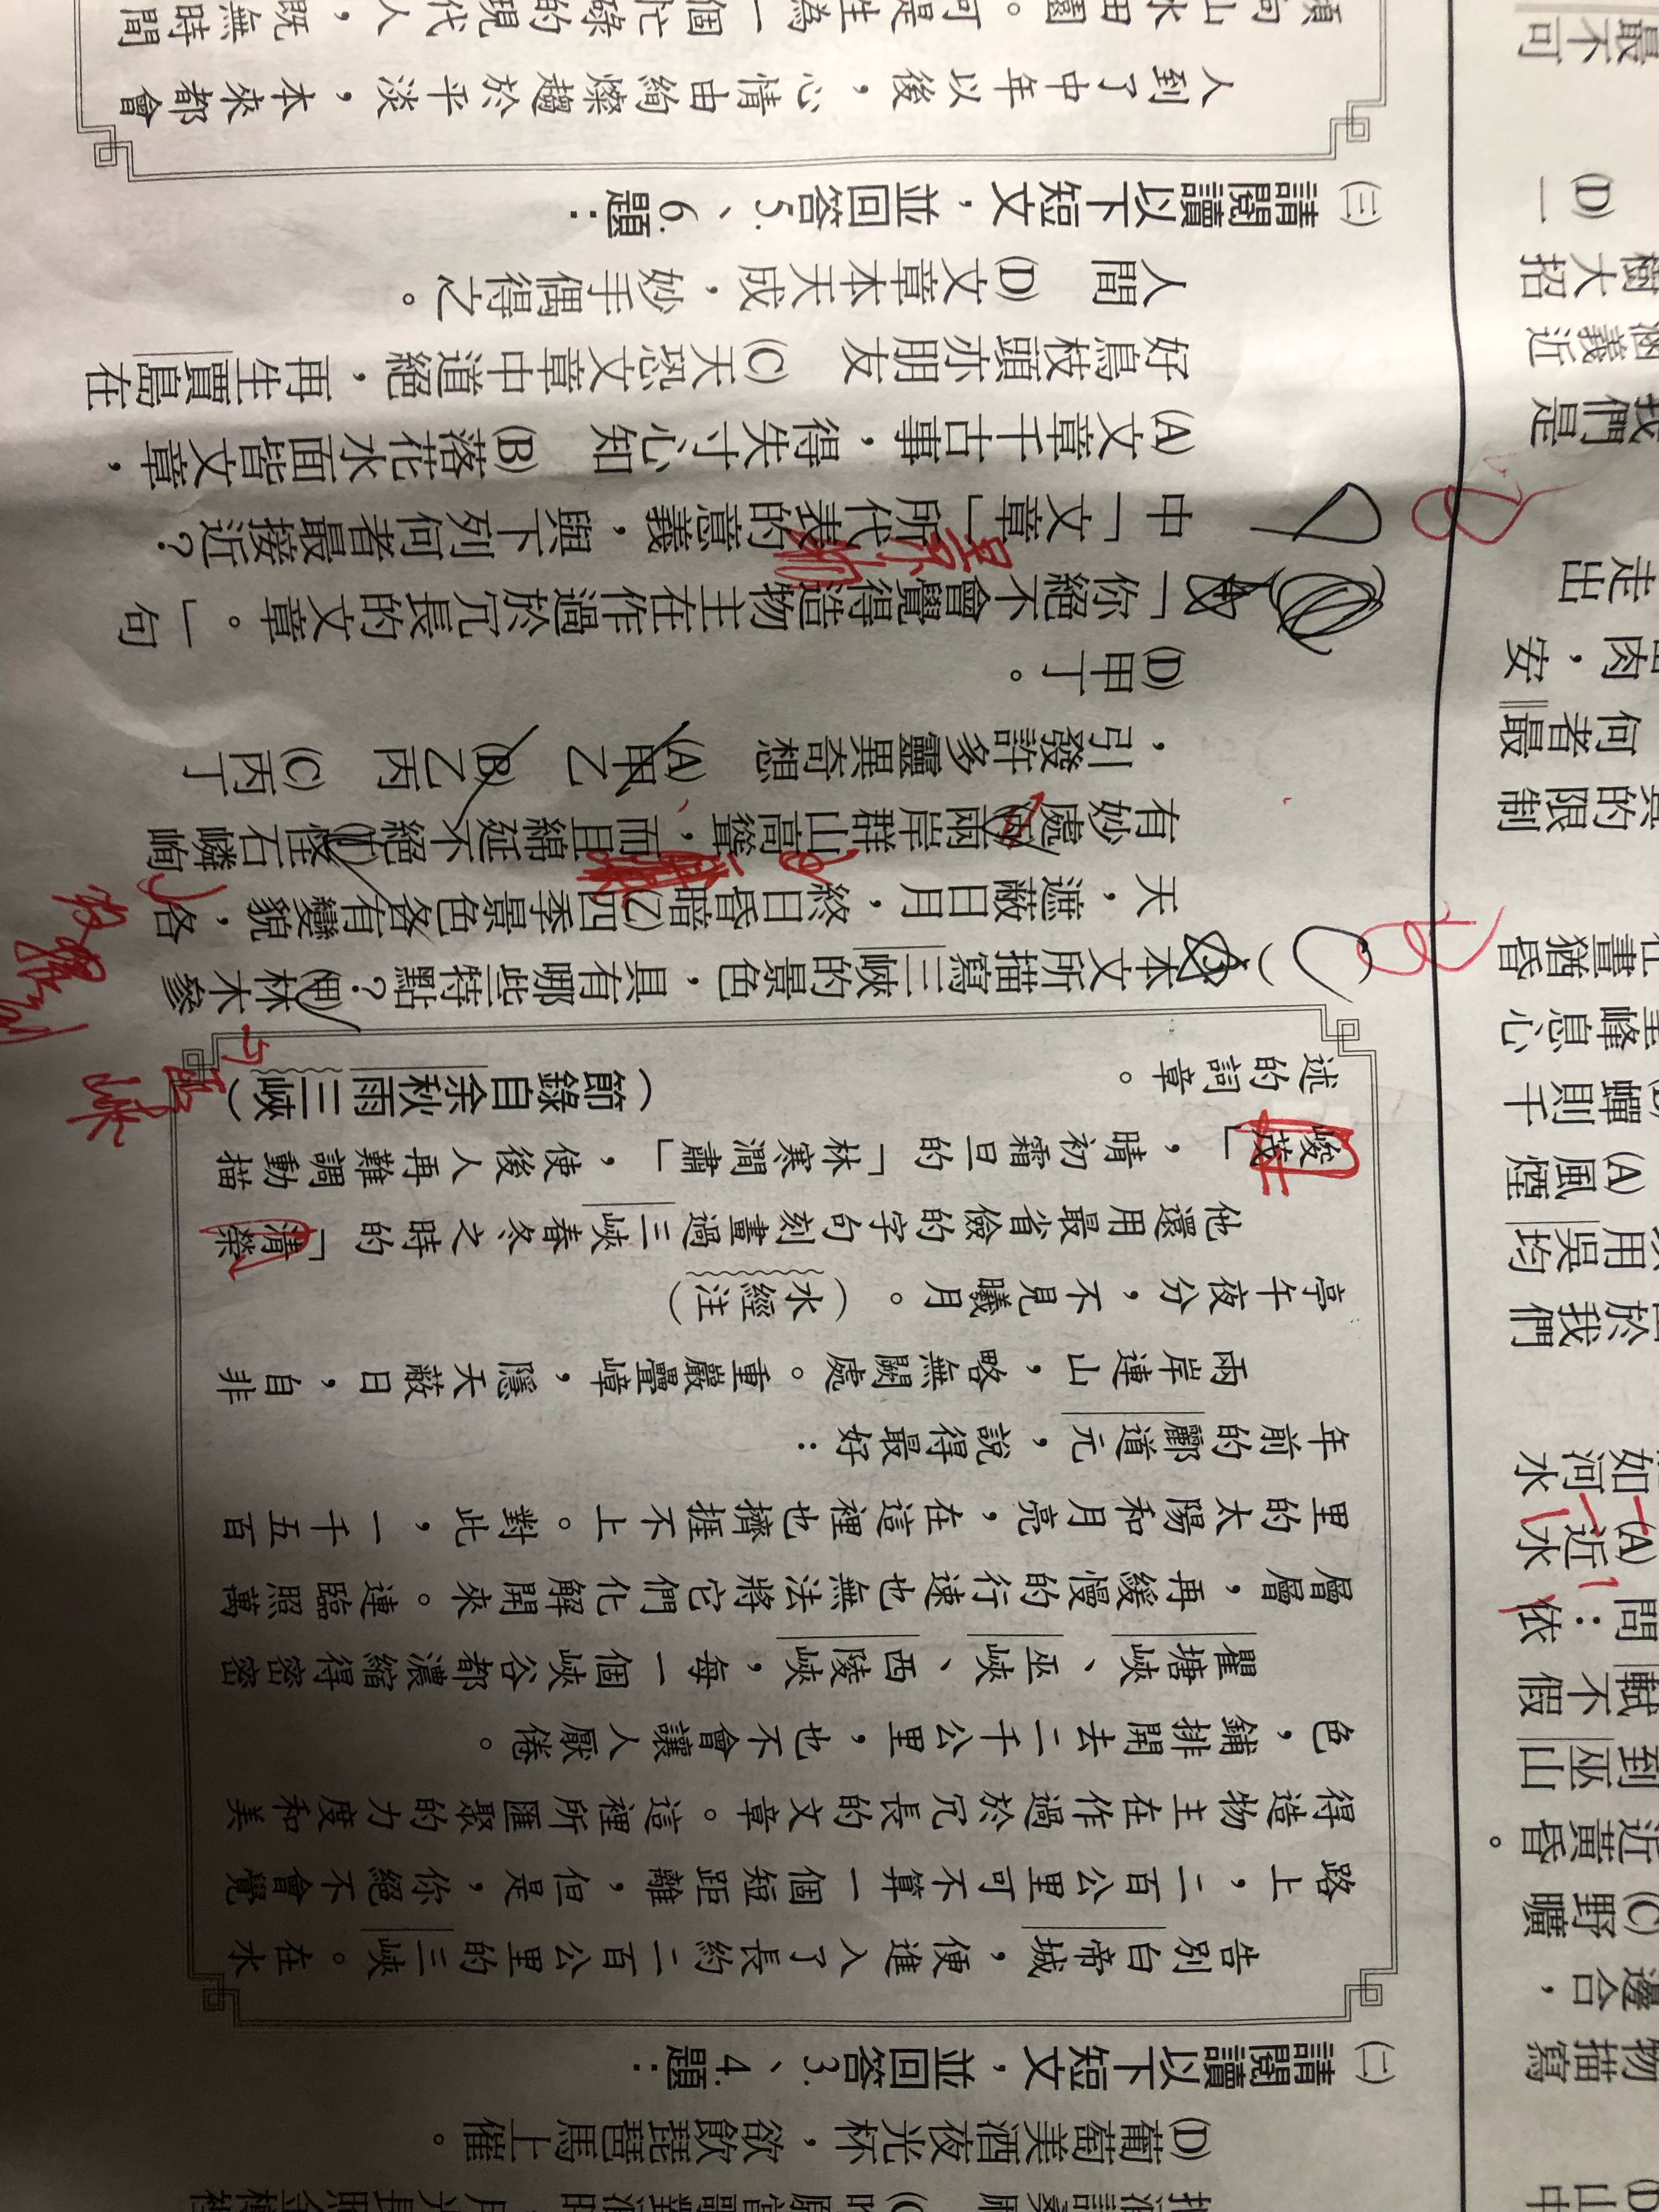 (D)葡萄美酒夜光杯，欲飲琵琶馬上催。
㈡ 請閱讀以下短文，並回答3.、4.題：
告別白帝城，便進入了長約二百公里的三峽。在水
路上，二百公里可不算一個短距離，但是，你絕不會覺
得造物主在作過於冗長的文章。這裡所匯聚的力度和美
色，鋪排開去二千公里，也不會讓人厭倦。
瞿塘峽、巫峽、西陵峽，每一個峽谷都濃縮得密密
層層，再緩慢的行速也無法將它們化解開來。連臨照萬
里的太陽和月亮，在這裡也擠捱不上。對此，一千五百
年前的酈道元，說得最好：
兩岸連山，略無闕處。重巖疊嶂，隱天蔽日，自非
亭午夜分，不見曦月。（水經注）
他還用最省儉的字句刻畫過三峽春冬之時的「清榮
峻茂」，晴初霜旦的「林寒澗肅」，使後人再難調動描
述的詞章。
（節錄自余秋雨三峽）
本文所描寫三峽的景色，具有哪些特點？(甲)林木參
天，遮蔽日月，終日昏暗(乙)四季景色各有變貌，各
有妙處(丙)兩岸群山高聳，而且綿延不絕(丁)怪石嶙峋
，引發許多靈異奇想 (A)甲乙 (B)乙丙 (C)丙丁
(D)甲丁。
「你絕不會覺得造物主在作過於冗長的文章。」一句
中「文章」所代表的意義，與下列何者最接近？
(A)文章千古事，得失寸心知 (B)落花水面皆文章，
好鳥枝頭亦朋友 (C)天恐文章中道絕，再生賈島在
人間 (D)文章本天成，妙手偶得之。
㈢ 請閱讀以下短文，並回答5.、6.題：
人到了中年以後，心情由絢燦趨於平淡，本來都會
傾向山水田園。可是生為一個忙碌的現代人，既無時間
物描寫
邊合，
(C)野曠
近黃昏。
到巫山
軾不假
問：依
(A)近水
如河水
於我們
用吳均
(A)風煙
蟬則千
峰息心
在晝猶昏
的限制
何者最
肉，安
走出
我們是
涵義近
樹大招
(D)一
最不可